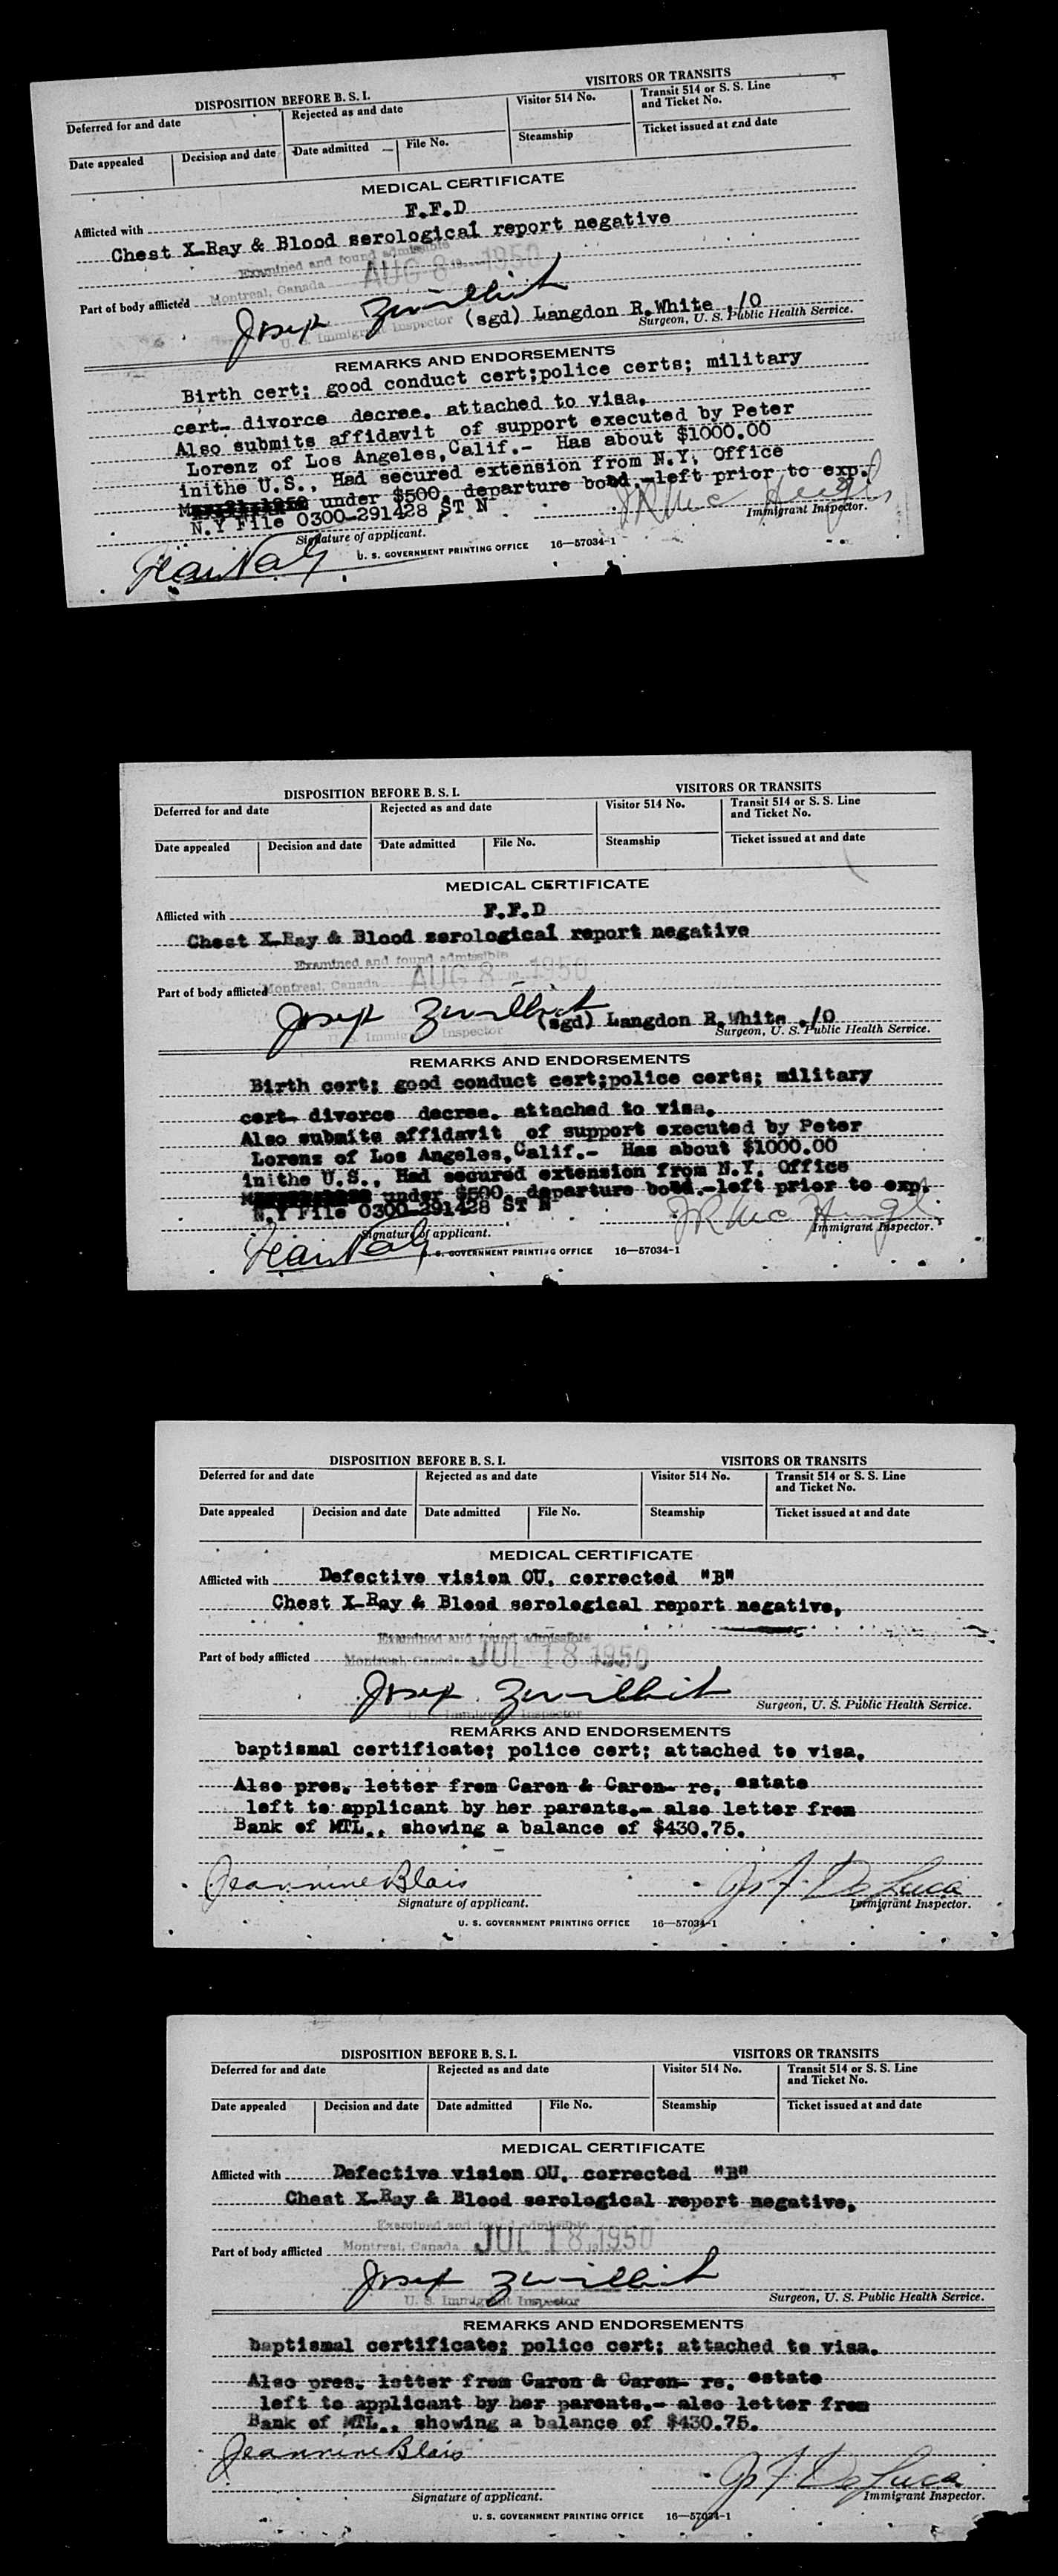 DISPOSITION BEFORE B. S. I.
VISITORS OR TRANSITS
Deferred for and date
Rejected as and date
Visitor 514 No.
Transit 514 or S. S. Line
and Ticket No.
Date appealed
Decision and date
Date admitted
File No.
Steamship
Ticket issued at and date
MEDICAL CERTIFICATE
Afflicted with F.F.D
Chest X-Ray & Blood serological report negative
Examined and found admissible
Montreal, Canada AUG 8 1950
Part of body afflicted
Joseph
U. S. Immigrant Inspector
(sgd) Langdon R.White ./O
Surgeon, U. S. Public Health Service.
REMARKS AND ENDORSEMENTS
Birth cert; good conduct cert;police certs; military
cert- divorce decree. attached to visa.
Also submits affidavit of support executed by Peter
Lorenz of Los Angeles,Calif.- Has about $1000.00
inithe U.S., Had secured extension from N.Y. Office
under $500. departure bond.-left prior to exp.
N.Y File 0300-291428 ST N
Signature of applicant.
Immigrant Inspector.
U. S. GOVERNMENT PRINTING OFFICE 16—57034-1
DISPOSITION BEFORE B. S. I.
VISITORS OR TRANSITS
Deferred for and date
Rejected as and date
Visitor 514 No.
Transit 514 or S. S. Line
and Ticket No.
Date appealed
Decision and date
Date admitted
File No.
Steamship
Ticket issued at and date
MEDICAL CERTIFICATE
Afflicted with F.F.D
Chest X-Ray & Blood serological report negative
Examined and found admissible
Montreal, Canada AUG 8 1950
Part of body afflicted
Joseph
U. S. Immigrant Inspector
(sgd) Langdon R.White ./O
Surgeon, U. S. Public Health Service.
REMARKS AND ENDORSEMENTS
Birth cert; good conduct cert;police certs; military
cert- divorce decree. attached to visa.
Also submits affidavit of support executed by Peter
Lorenz of Los Angeles,Calif.- Has about $1000.00
inithe U.S., Had secured extension from N.Y. Office
under $500. departure bond.-left prior to exp.
N.Y File 0300-291428 ST N
Signature of applicant.
Immigrant Inspector.
U. S. GOVERNMENT PRINTING OFFICE 16—57034-1
DISPOSITION BEFORE B. S. I.
VISITORS OR TRANSITS
Deferred for and date
Rejected as and date
Visitor 514 No.
Transit 514 or S. S. Line
and Ticket No.
Date appealed
Decision and date
Date admitted
File No.
Steamship
Ticket issued at and date
MEDICAL CERTIFICATE
Afflicted with Defective vision OU. corrected "B"
Chest X-Ray & Blood serological report negative.
Examined and found admissible
Montreal, Canada JUL 18 1950
Part of body afflicted
Joseph
U. S. Immigrant Inspector
Surgeon, U. S. Public Health Service.
REMARKS AND ENDORSEMENTS
baptismal certificate; police cert; attached to visa.
Also pres. letter from Caron & Caron- re. estate
left to applicant by her parents.- also letter from
Bank of MTL., showing a balance of $430.75.
Jeannine Blais
J. F. De Luca
Signature of applicant.
Immigrant Inspector.
U. S. GOVERNMENT PRINTING OFFICE 16—57034-1
DISPOSITION BEFORE B. S. I.
VISITORS OR TRANSITS
Deferred for and date
Rejected as and date
Visitor 514 No.
Transit 514 or S. S. Line
and Ticket No.
Date appealed
Decision and date
Date admitted
File No.
Steamship
Ticket issued at and date
MEDICAL CERTIFICATE
Afflicted with Defective vision OU. corrected "B"
Chest X-Ray & Blood serological report negative.
Examined and found admissible
Montreal, Canada JUL 18 1950
Part of body afflicted
Joseph
U. S. Immigrant Inspector
Surgeon, U. S. Public Health Service.
REMARKS AND ENDORSEMENTS
baptismal certificate; police cert; attached to visa.
Also pres. letter from Caron & Caron- re. estate
left to applicant by her parents.- also letter from
Bank of MTL., showing a balance of $430.75.
Jeannine Blais
J. F. De Luca
Signature of applicant.
Immigrant Inspector.
U. S. GOVERNMENT PRINTING OFFICE 16—57034-1